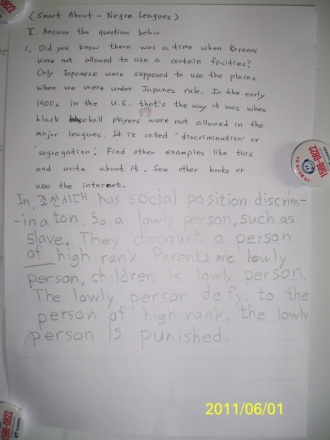 < Smart About - Negro Leagues >
II. Answer the question below
1. Did you know there was a time when Koreans
were not allowed to use a certain facilities?
Only Japanese were supposed to use the places
when we were under Japanes rule. In the early
1900s in the U.S. that's the way it was when
black baseball players were not allowed in the
major leagues. It is called 'discrimination' or
'segregation'. Find other examples like this
and write about it. See other books or
use the internet.
In, 조선시대 has social position discrim-
-ination, So, a lowly person, such as
slave. They discount a person
of high rank. Parents are lowly
person, children is lowly person.
The lowly person defy to the
person of high rank, the lowly
person is punished.
2011/06/01